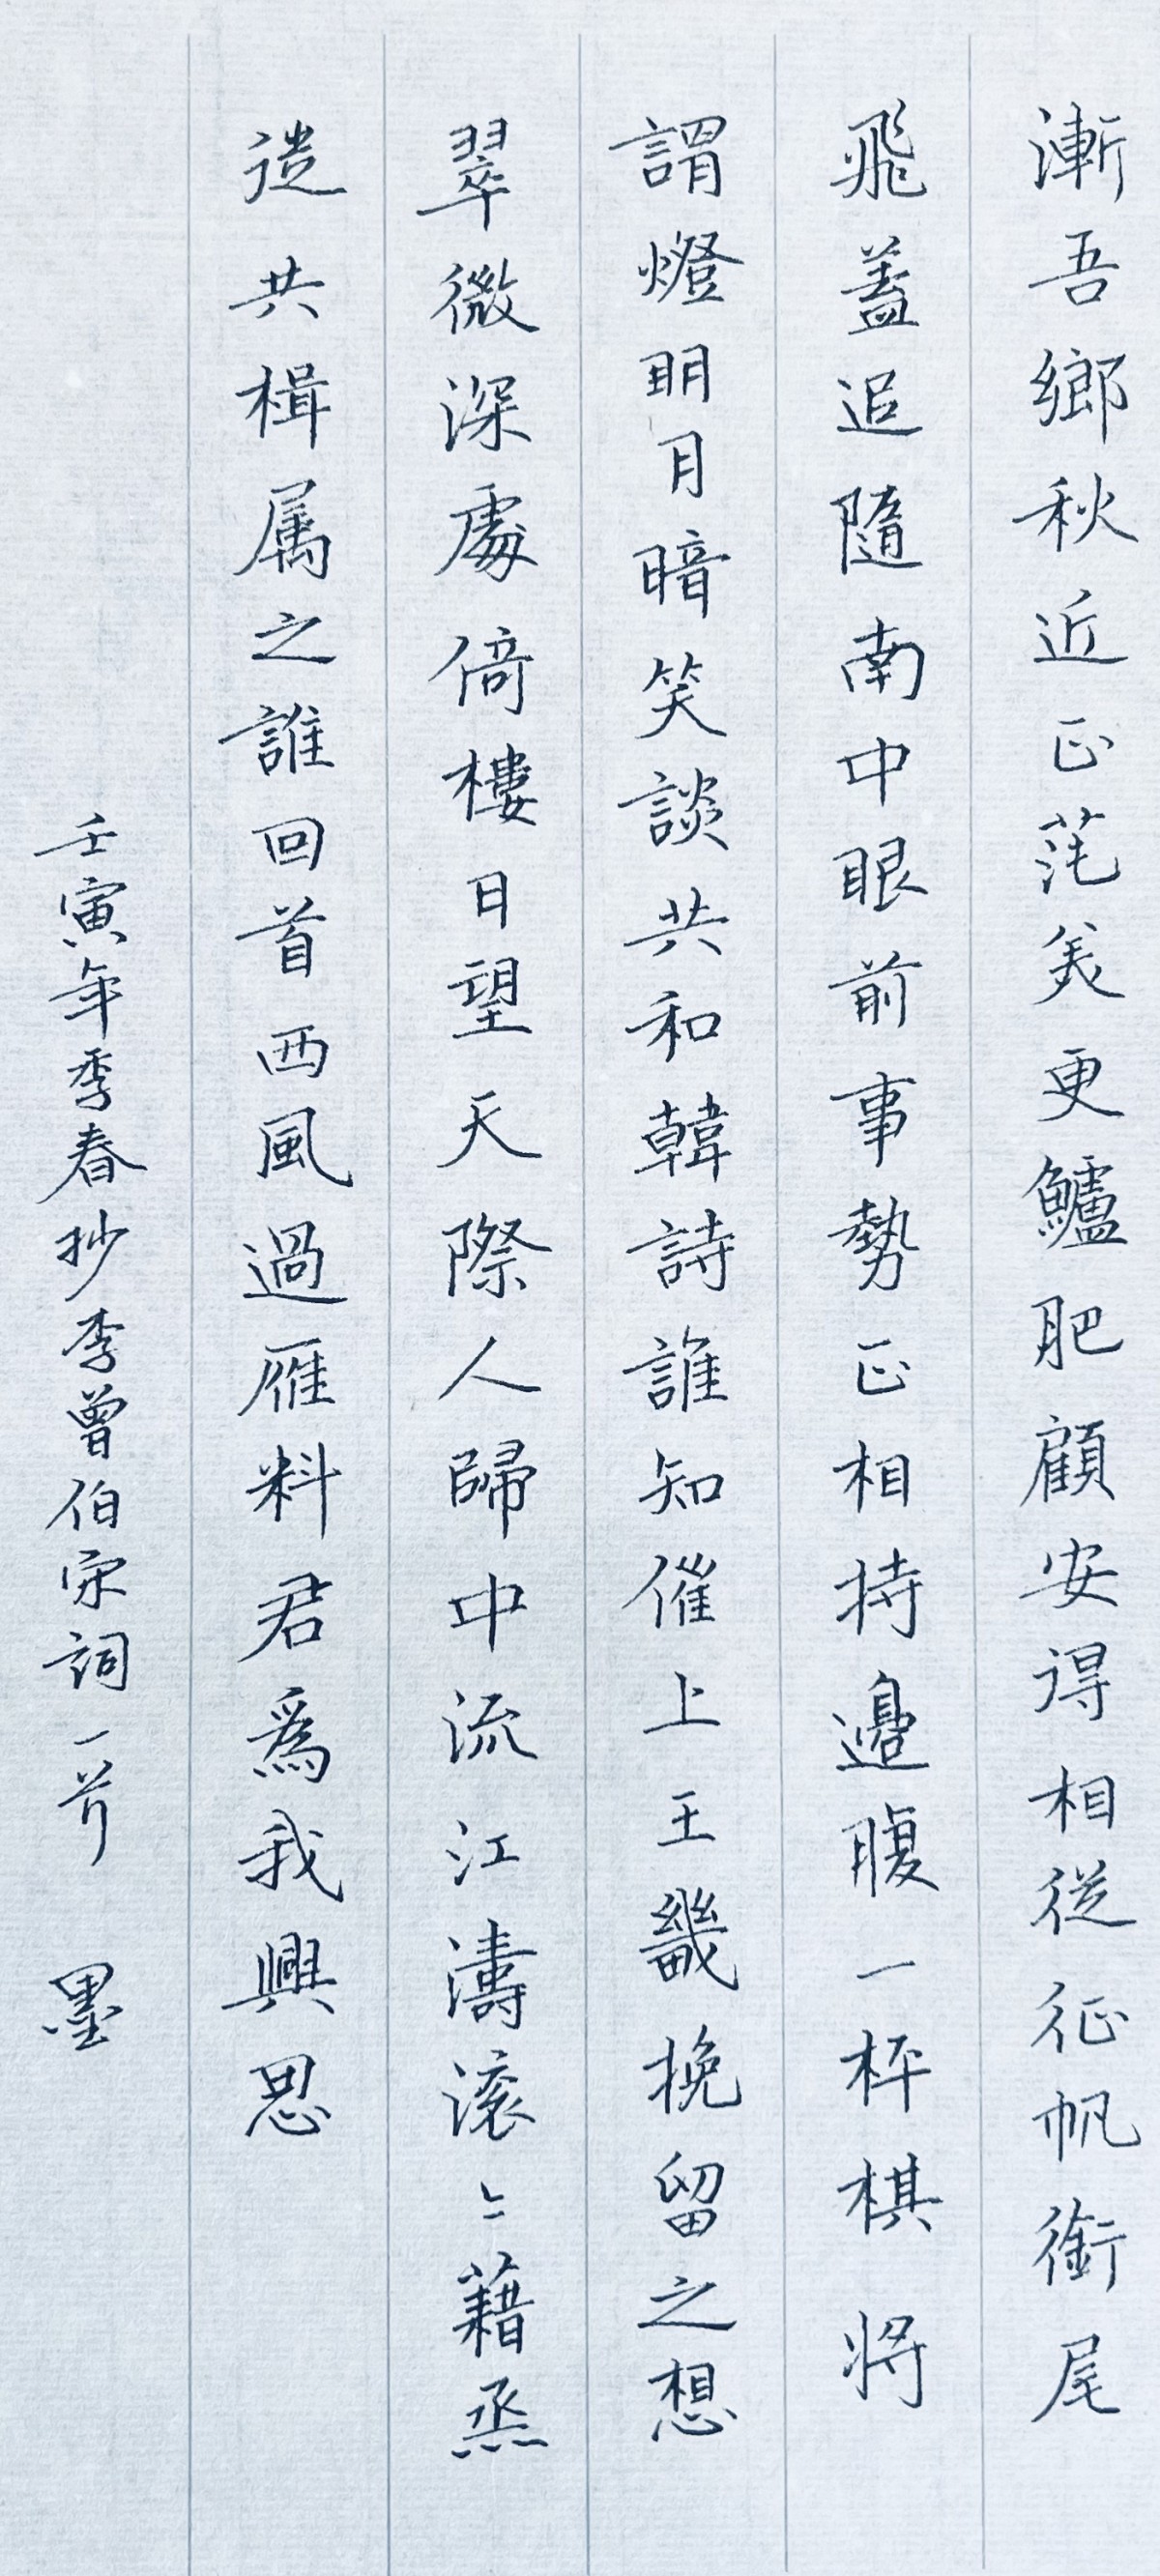 漸吾鄉秋近正莼美更鱸肥顧安得相從征帆銜尾
飛蓋追隨南中眼前事勢正相持邊腹一枰棋將
謂燈明月暗笑談共和韓詩誰知催上王畿挽留之想
翠微深處倚樓日望天際人歸中流江濤滚〻藉烝
造共楫属之誰回首西風過雁料君為我興思
壬寅年季春抄李曾伯宋詞一首 墨